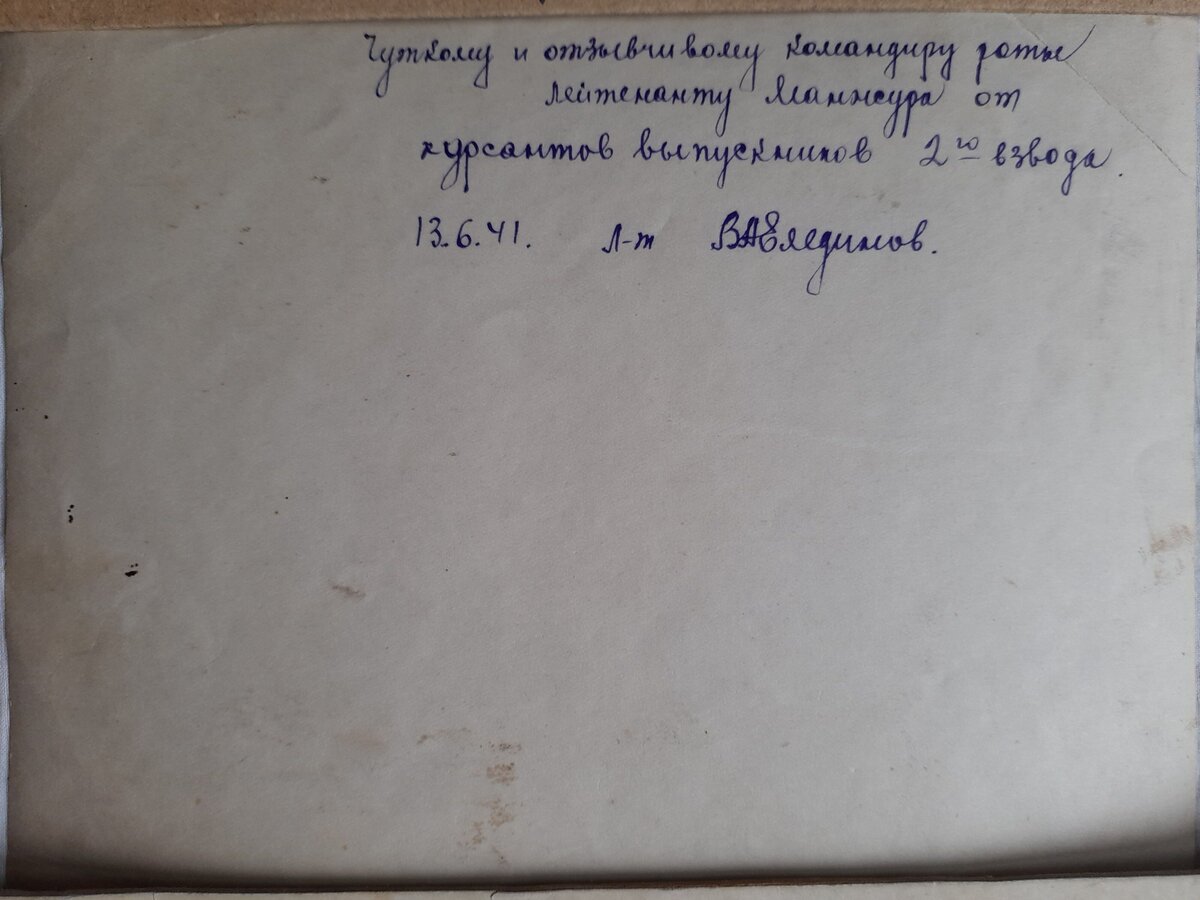 Чуткому и отзывчивому командиру роты
лейтенанту Манжура от
курсантов выпускников 2го взвода.
13.6.41. л-т